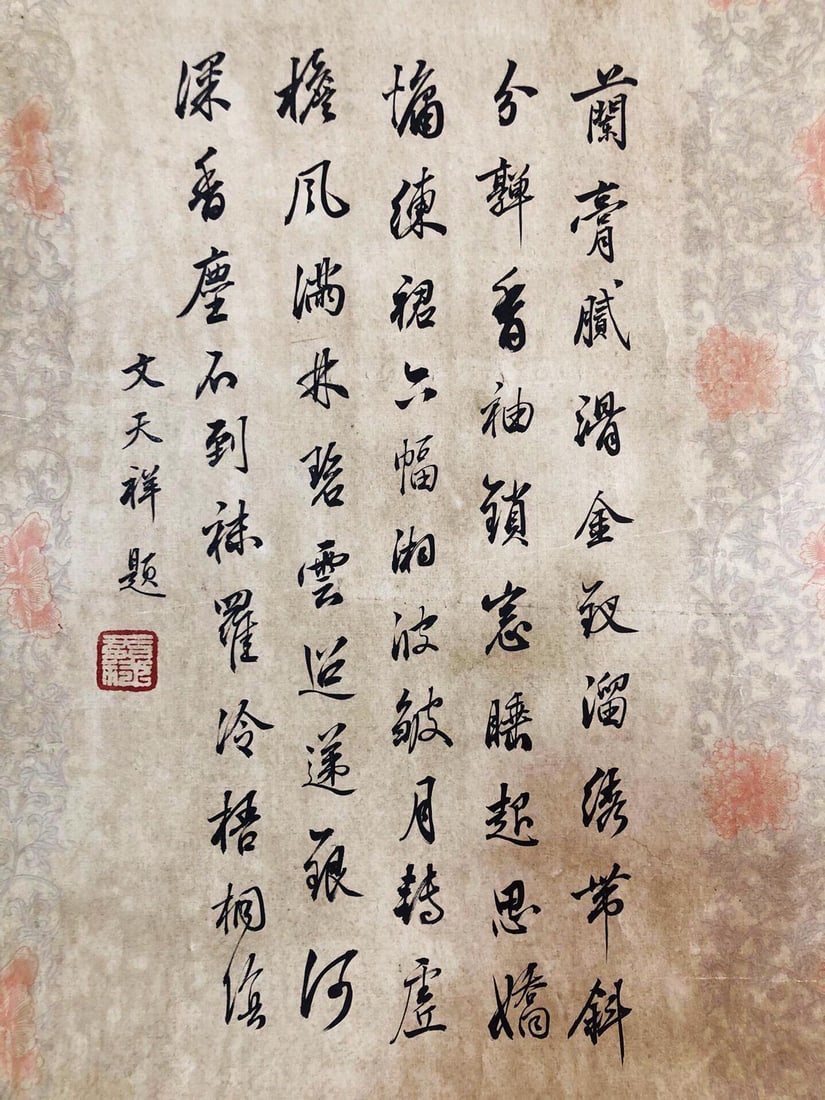 蘭膏膩滑金釵溜綉帶斜
分嚲香袖鎖窓睡起思嬌
慵練裙六幅湘波皺月轉虛
檐風滿林碧雲迢遞銀河
深香塵不到袜羅冷梧桐陰
文天祥題